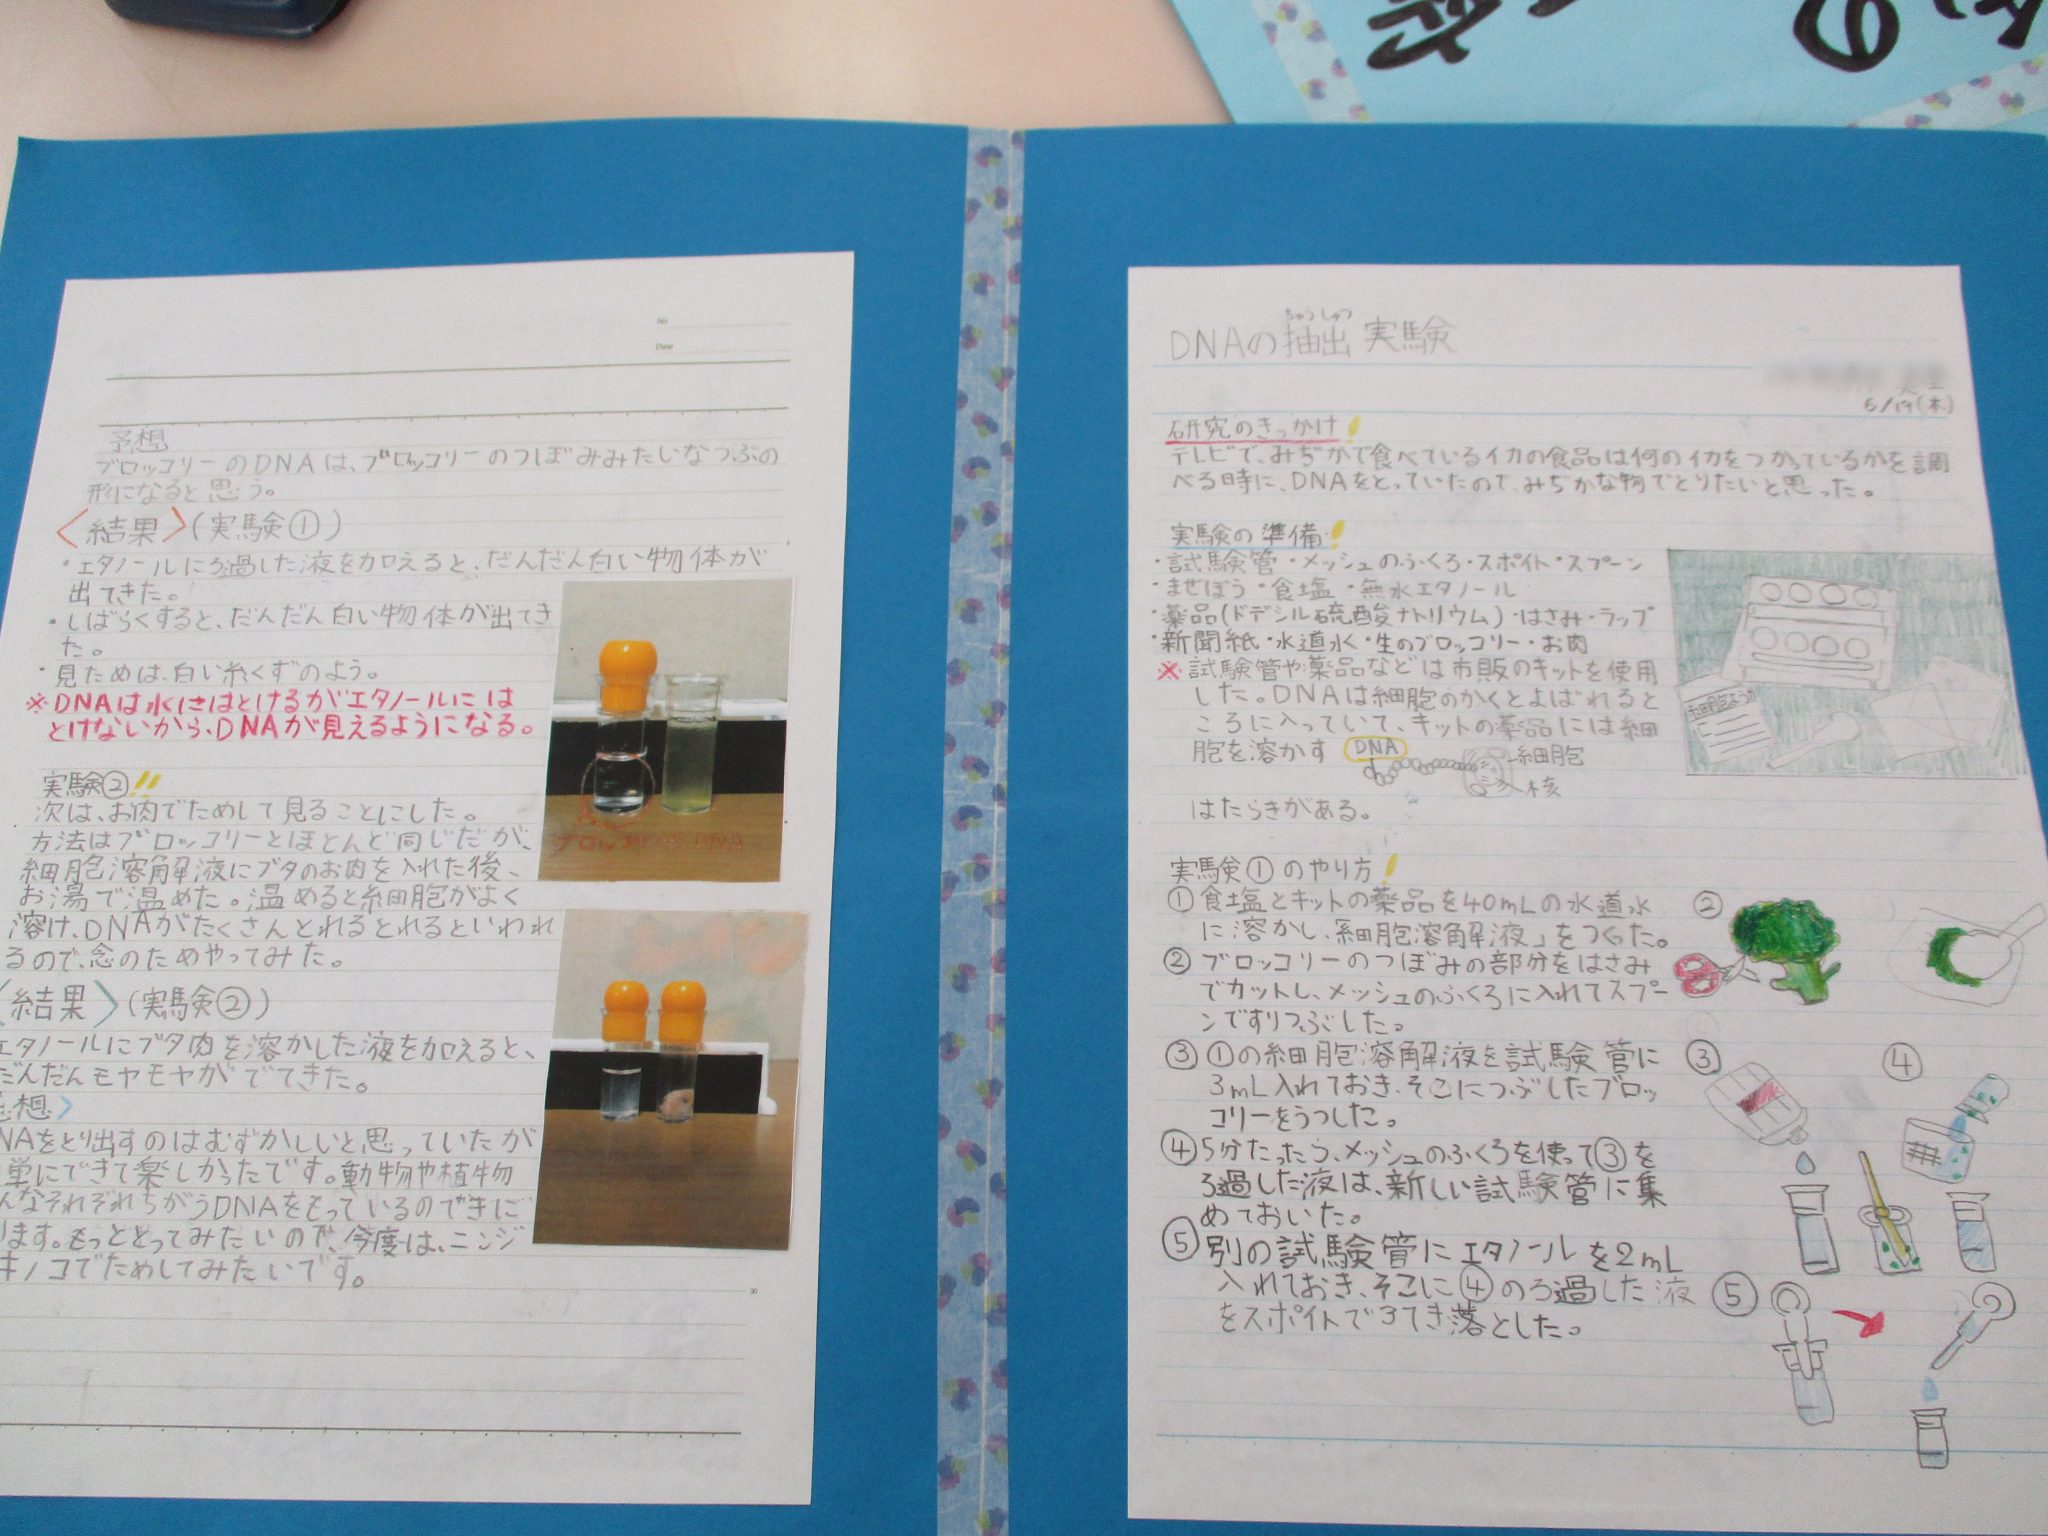 DNAの抽出実験
ちゅうしゅつ
6/19(木)
研究のきっかけ!
テレビで、みぢかで食べているイカの食品は何のイカをつかっているかを調
べる時に、DNAをとっていたので、みぢかな物でとりたいと思った。
実験の準備!
・試験管・メッシュのふくろ・スポイト・スプーン
・まぜぼう・食塩・無水エタノール
・薬品(ドデシル硫酸ナトリウム)・はさみ・ラップ
・新聞紙・水道水・生のブロッコリー・お肉
※試験管や薬品などは市販のキットを使用
した。DNAは細胞のかくとよばれると
ころに入っていて、キットの薬品には細
胞を溶かす
DNA
細胞
核
はたらきがある。
実験①のやり方!
①食塩とキットの薬品を40mLの水道水
に溶かし、細胞溶解液」をつくった。
②ブロッコリーのつぼみの部分をはさみ
でカットし、メッシュのふくろに入れてスプー
ンですりつぶした。
③①の細胞溶解液を試験管に
3mL入れておき、そこにつぶしたブロッ
コリーをうつした。
④5分たったら、メッシュのふくろを使って③を
ろ過した液は、新しい試験管に集
めておいた。
⑤別の試験管にエタノールを2mL
入れておき、そこに④のろ過した液
をスポイトで3てき落とした。
②
③
④
⑤
No
Date
予想
ブロッコリーのDNAは、ブロッコリーのつぼみみたいなつぶの
形になると思う。
〈結果〉(実験①)
・エタノールにろ過した液を加えると、だんだん白い物体が
出てきた。
・しばらくすると、だんだん白い物体が出てき
た。
・見ためは、白い糸くずのよう。
※DNAは水にはとけるがエタノールには
とけないから、DNAが見えるようになる。
ブロッコリーのDNA
実験②!!
次は、お肉でためして見ることにした。
方法はブロッコリーとほとんど同じだが、
細胞溶解液にブタのお肉を入れた後、
お湯で温めた。温めると細胞がよく
溶け、DNAがたくさんとれるとれるといわれ
るので、念のためやってみた。
〈結果〉(実験②)
エタノールにブタ肉を溶かした液を加えると、
だんだんモヤモヤがでてきた。
想〉
NAをとり出すのはむずかしいと思っていたが
単にできて楽しかったです。動物や植物
んなそれぞれちがうDNAをもっているのできに
ります。もっととってみたいので、今度は、ニンジ
キノコでためしてみたいです。
30